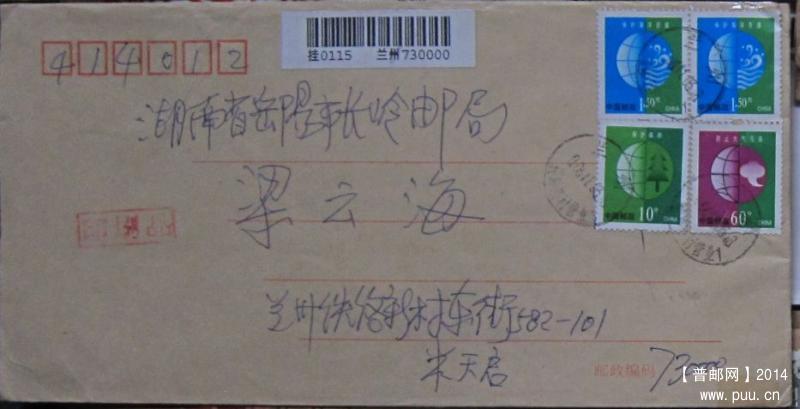 414012
挂0115 兰州730000
湖南省岳阳市长岭邮局
梁云海
兰州铁路新村东街582-101
米天启
邮政编码 730000
1.50 中国邮政 CHINA
1.50 中国邮政 CHINA
10分 中国邮政 CHINA
60分 中国邮政 CHINA
【普邮网】2014
www.puu.cn